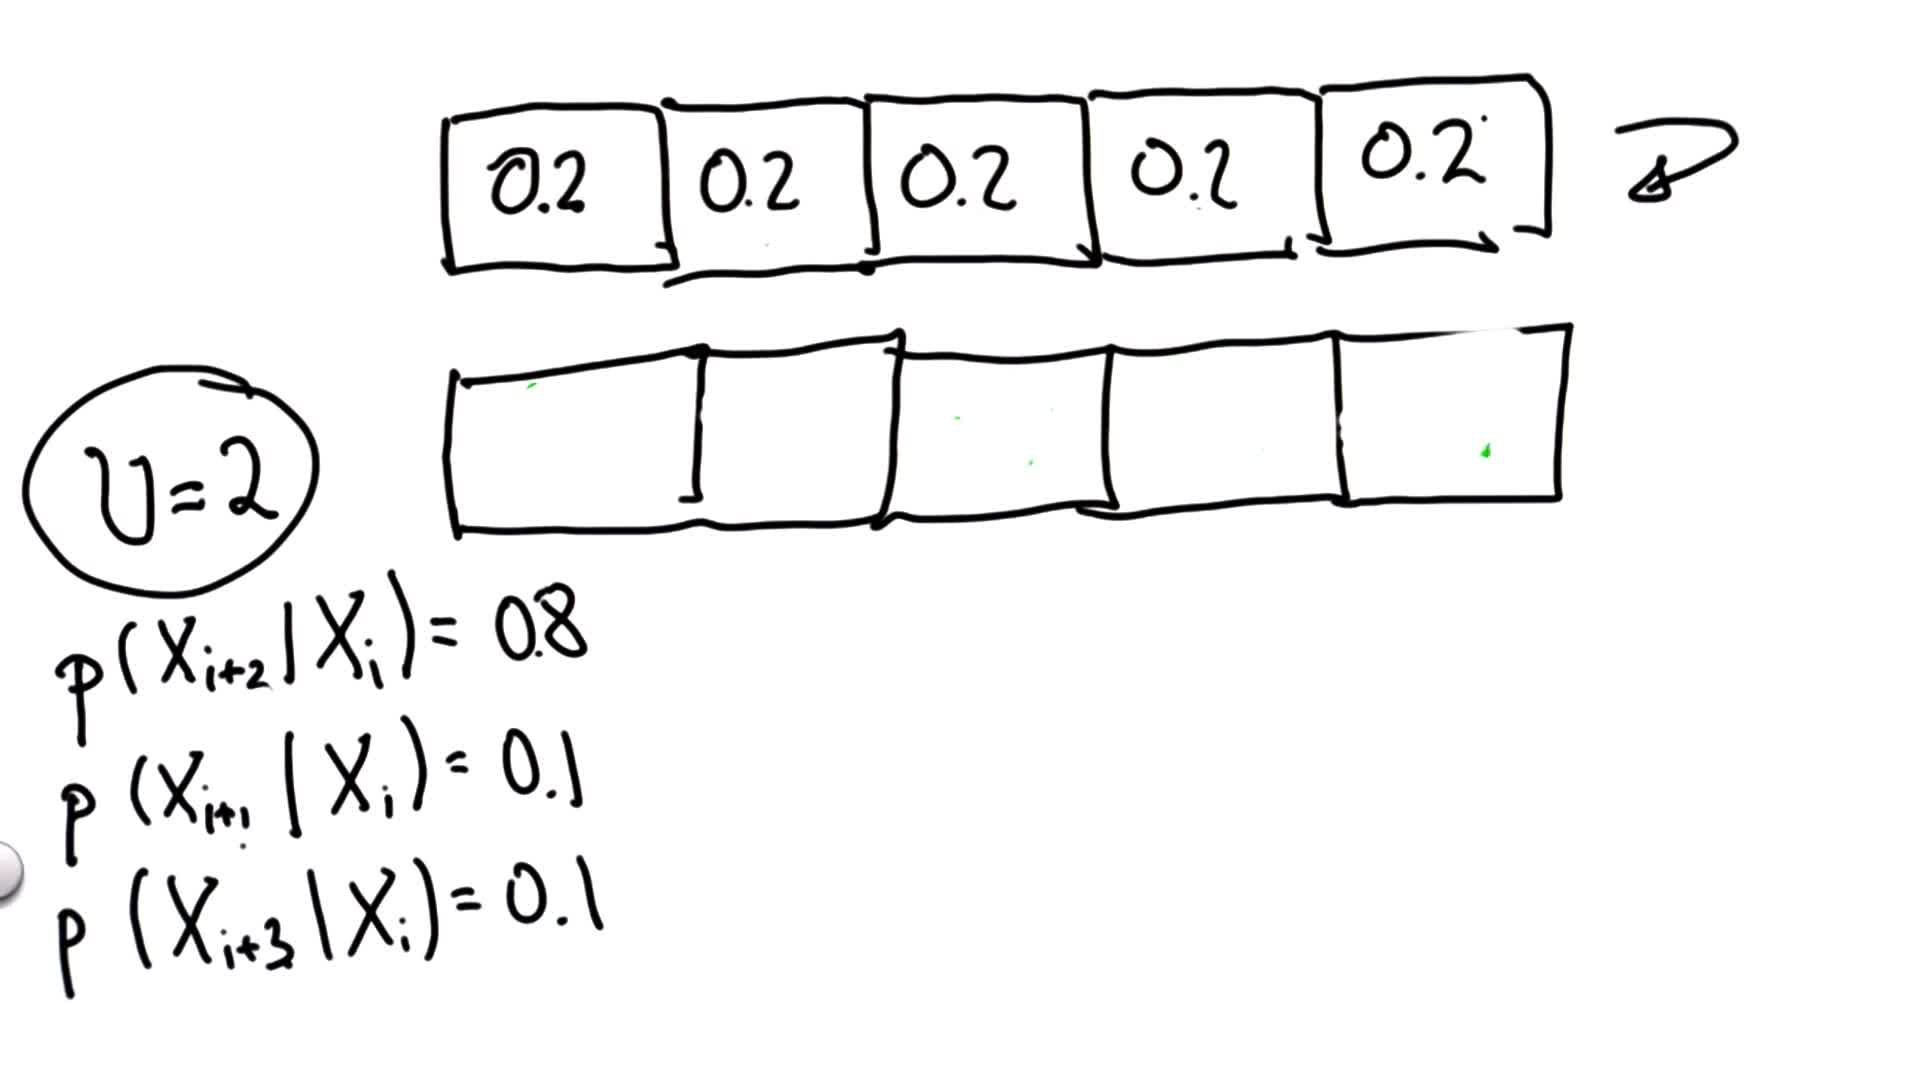 0.2 0.2 0.2 0.2 0.2
U=2
p(X_{i+2}|X_i)= 0.8
p(X_{i+1}|X_i)= 0.1
p(X_{i+3}|X_i)= 0.1